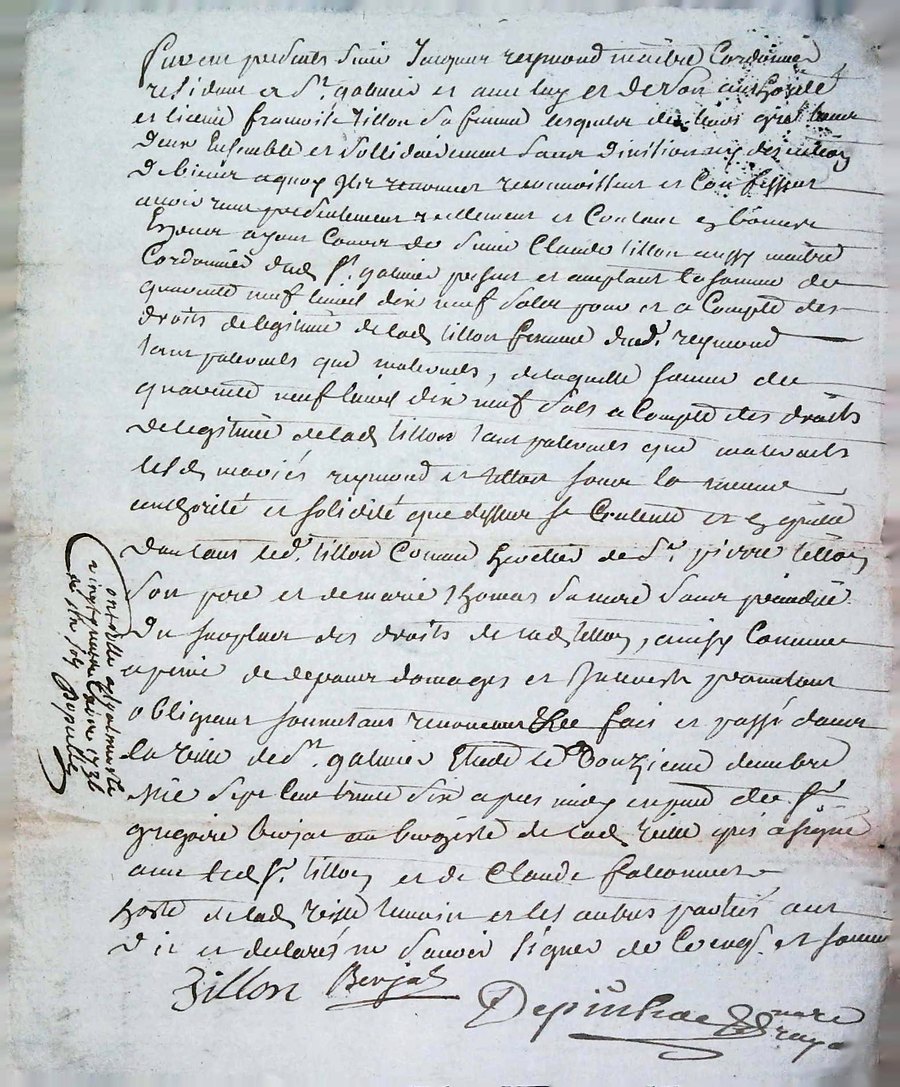 furent presents Sieur Jacques reymond maitre Cordonnier
residant a St. galmier et avec luy et de son authorité
et licence françoise tillon sa femme lesquels de leurs gré
deux Ensemble et sollidairement sans division ny discution
de biens a quoy ils renoncent reconnoissent et Confessent
avoir reçu presentement reellement et Contant
ayant Cours de Sieur Claude tillon aussy maitre
Cordonnier dud. St. galmier present et acceptant la somme de
quarante neuf livres dix neuf sols pour et a Compte des
droits de legitime de lad. tillon femme dud. reymond
tant paternels que maternels, de laquelle somme de
quarante neuf livres dix neuf sols a Compte des droits
de legitime de lad. tillon tant paternels que maternels
lesd. mariés reymond et tillon sous la meme
authorité et solidité que dessus se Contente et quitte
led. tillon Comme heritier de Sr. pierre tillon
son pere et de marie thomas sa mere sans prejudice
du surplus des droits de lad. tillon, ainsy Convenu
a peine de depens domages et Interests promettant
obligeant soumettant renonceant fait et passé dans
la ville de St. galmier Etude le Douzieme
Mil Sept Cent trente Six apres midy en presence de Sr.
gregoire berjat de lad. ville qui a signé
avec led. Sr. tillon et de Claude falconnier
hoste de lad. ville temoin et les autres parties ont
Dit et declarés ne Savoir Signer de Ce enquis et sommés
Tillon Berjat
Depinhac nore
royal
1736
sols